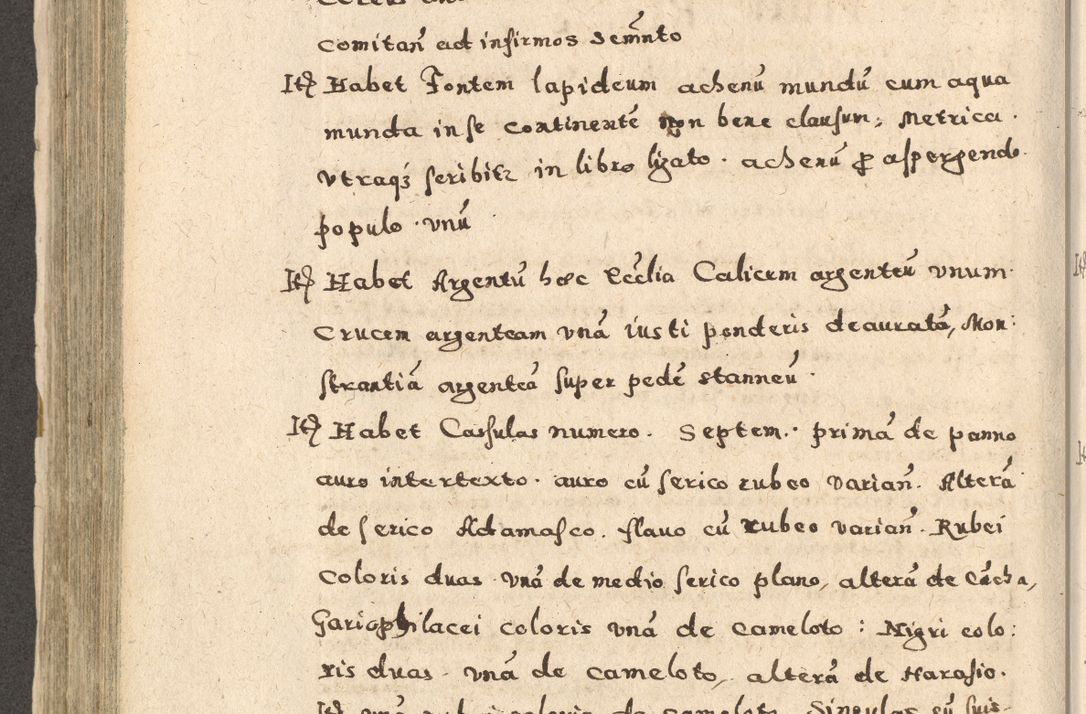 comitań ad infirmos Semńto
Itꝫ Habet Fontem lapideum achenú mundú cum aqua
munda in se continenté non bene clausum; Metrica.
Vtraqꝫ scribitꝛ in libro ligato. achenú ꝓ aspergendo.
populo. vnú
Itꝫ Habet Argentú hæc Eccĺia Calicem argenteú vnum.
Crucem argenteam vná iusti ponderis deauratá, Mon:
strantiá argenteá super pedé stanneú.
Itꝫ Habet Casulas numero. Septem. primá de panno
auro intertexto. auro cú serico rubeo variań. Alterá
de serico Adamasco. flauo cú rubeo variań. Rubei
Coloris duas. vná de medio serico plano, alterá de Cácha,
Gariophilacei coloris vná de Cameloto: Nigri colo:
ris duas. vná de cameloto, alterá de Harasio.
Itꝫ vná rubei coloris de cameloto. Singulas cú suis